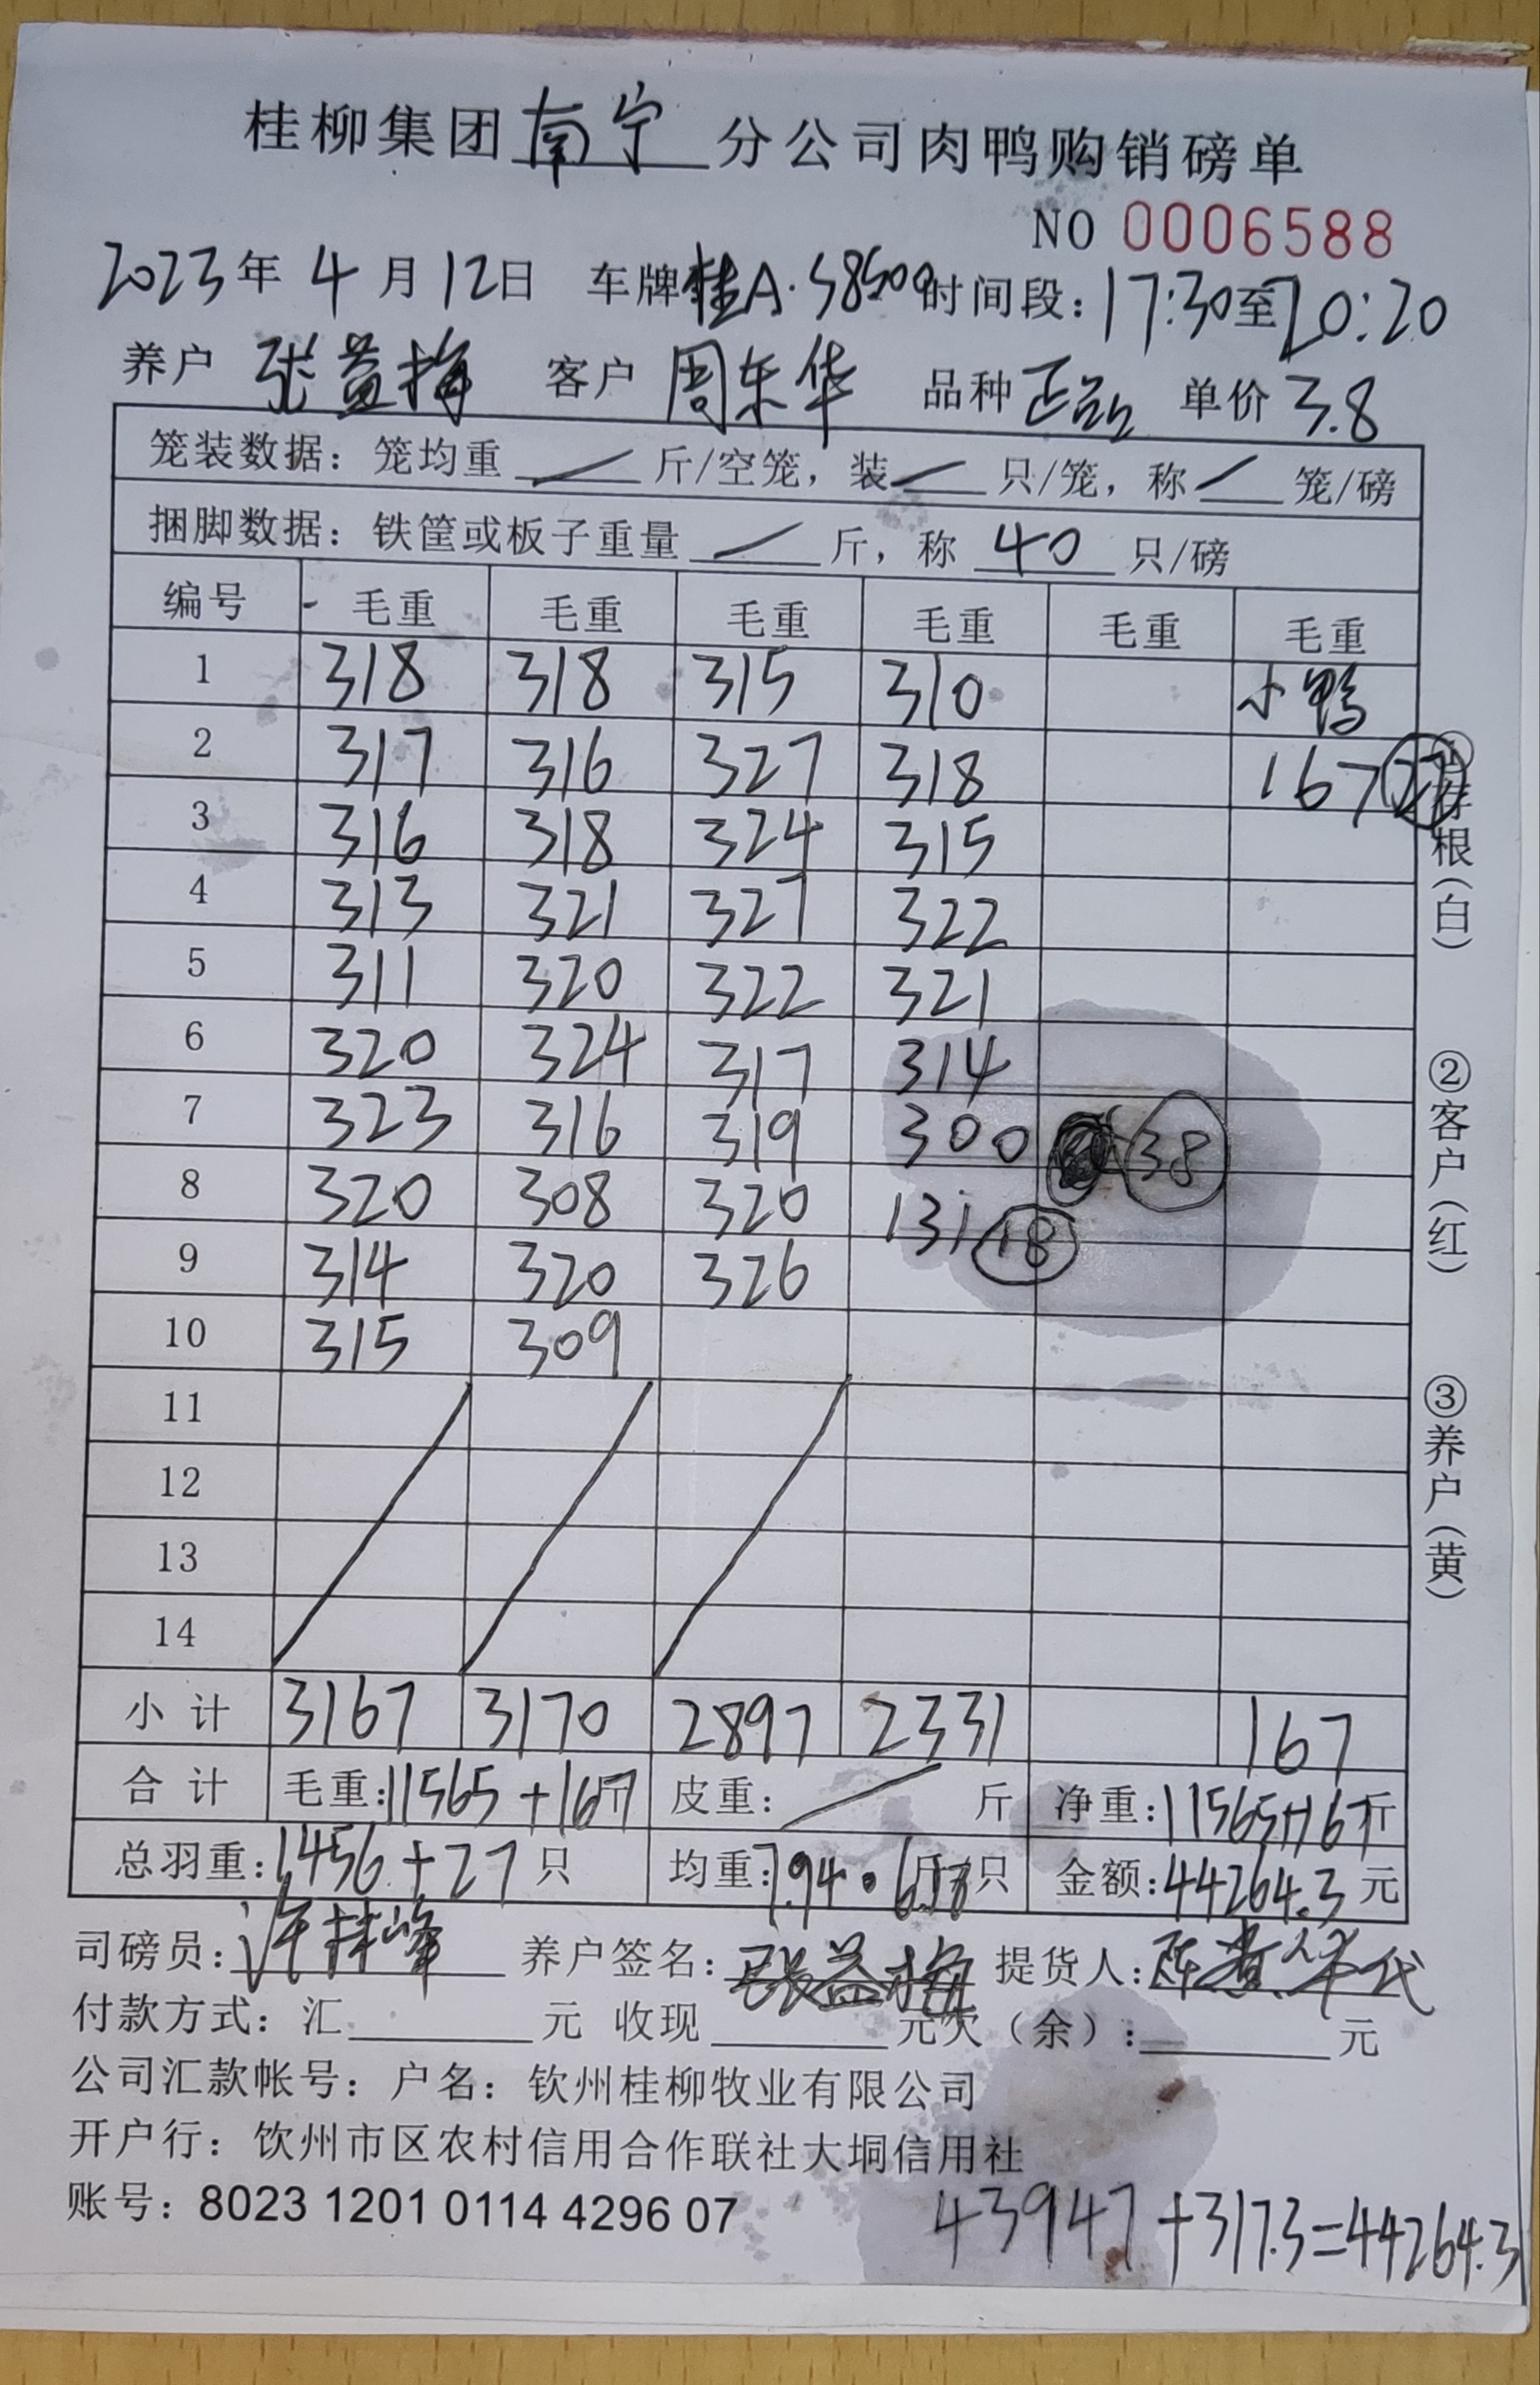 桂柳集团南宁分公司肉鸭购销磅单
NO 0006588
2023年4月12日 车牌桂A·S8500时间段：17:30至20:20
养户 张益梅 客户 周东华 品种 正品 单价 3.8
笼装数据：笼均重 / 斤/空笼，装 / 只/笼，称 / 笼/磅
捆脚数据：铁筐或板子重量 / 斤，称 40 只/磅
编号 毛重 毛重 毛重 毛重 毛重 毛重
1 318 318 315 310 小鸭
2 317 316 327 318 167 27
3 316 318 324 315
4 313 321 327 322
5 311 320 322 321
6 320 324 317 314
7 323 316 319 300 38
8 320 308 320 131 18
9 314 320 326
10 315 309
11
12
13
14
小计 3167 3170 2897 2331 167
合计 毛重：11565+167斤 皮重：/ 斤 净重：11565+167斤
总羽重：1456+27只 均重：7.94 · 6.18斤/只 金额：44264.3元
司磅员：许桂峰 养户签名：张益梅 提货人：华代
付款方式：汇 元 收现 元欠（余）： 元
公司汇款帐号：户名：钦州桂柳牧业有限公司
开户行：饮州市区农村信用合作联社大垌信用社
账号：8023 1201 0114 4296 07
43947+317.3=44264.3
①存根（白）
②客户（红）
③养户（黄）